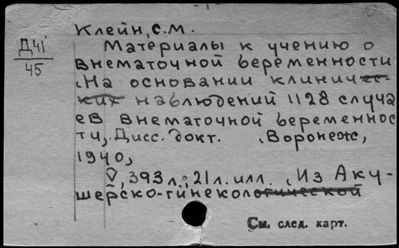 Клейн, С.М.
Д41
45
Материалы к учению о
внематочной беременности
На основании клиничес-
ких наблюдений 1128 случа
ев внематочной беременнос
ти, Дисс. докт. Воронеж,
1940,
V, 393 л.; 21 л. илл. Из Аку-
шерско-гинекологической
См. след. карт.